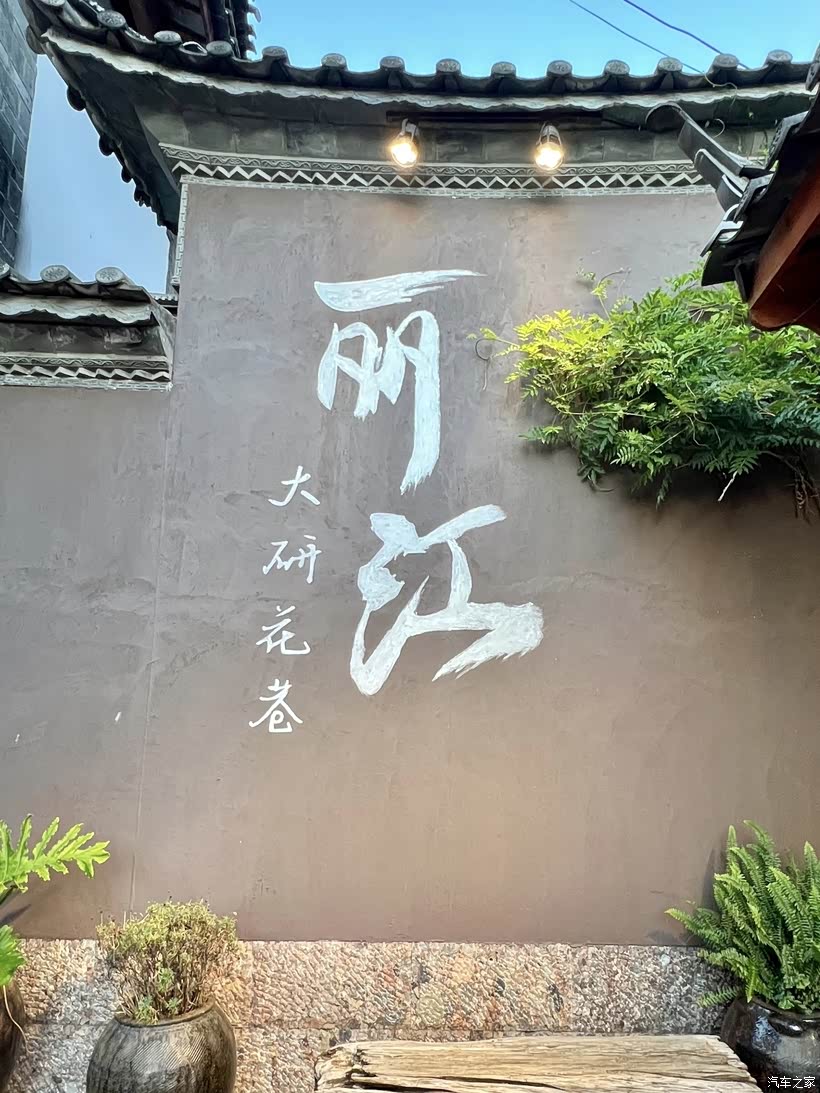 丽江
大研花巷
汽车之家